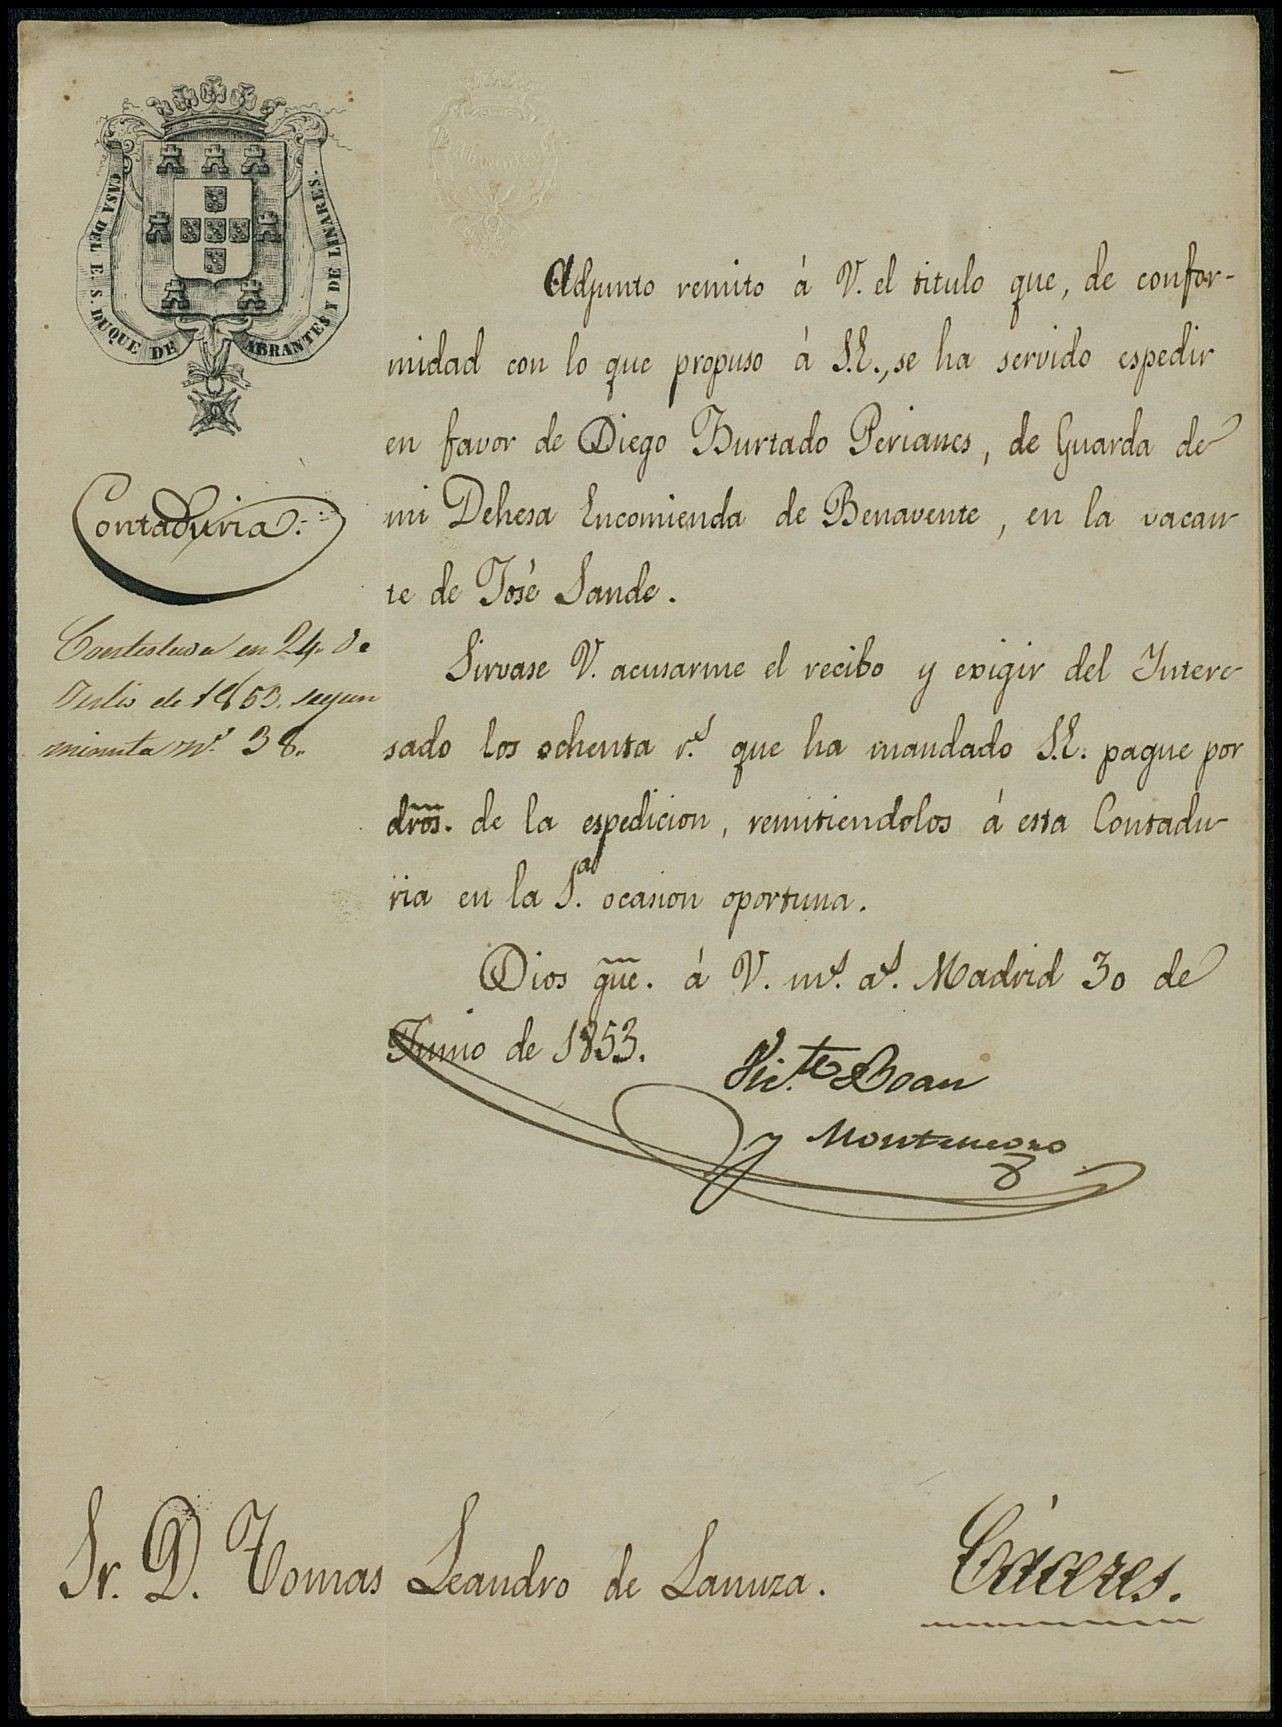 CASA DEL E. S. DUQUE DE ABRANTES Y DE LINARES.
Contaduria.
Contestada en 24 de
Julio de 1853. segun
minuta n.º 38.
Adjunto remito á V. el titulo que, de confor-
midad con lo que propuso á S.E., se ha servido espedir
en favor de Diego Hurtado Perianes, de Guarda de
mi Dehesa Encomienda de Benavente, en la vacan-
te de José Sande.
Sirvase V. acusarme el recibo y exigir del Intere-
sado los ochenta r.s que ha mandado S.E. pague por
dros. de la espedicion, remitiendolos á esta Contadu-
ria en la 1.a ocasion oportuna.
Dios gue. á V. m.s a.s Madrid 30 de
Junio de 1853.
Vic.te Boan
y Montenegro
Sr. D. Tomas Leandro de Lanuza. Cáceres.